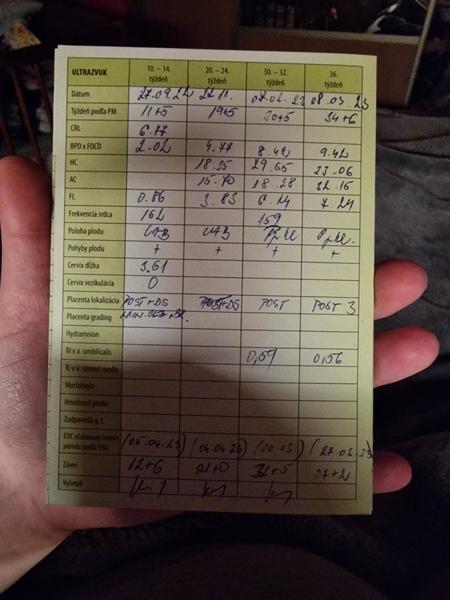 ULTRAZVUK 10. – 14. týždeň 20. – 24. týždeň 30. – 32. týždeň 36. týždeň
Dátum 27.09.22 22.11. 07.02.23 08.03 23
Týždeň podľa PM 11+5 19+5 30+5 34+6
CRL 6.77
BPD x FOCD 2.02 4.77 8.42 9.42
HC 18.35 29.65 33.06
AC 15.70 28.28 32.15
FL 0.86 3.83 6.24 7.24
Frekvencia srdca 162 159
Poloha plodu
Pohyby plodu + + + +
Cervix dĺžka 3.61
Cervix vezikulácia 0
Placenta lokalizácia POST+DS POST+DS POST POST 3
Placenta grading
Hydramnion
RI v a. umbilicalis 0,59 0,56
RI v a. cerebri media
Morfológia
Hmotnosť plodu
Zodpovedá g. t.
EDC očakávaný termín pôrodu podľa USG (05.04.23) (04.04.23) (27.03.23)
Záver 12+6 32+5 37+2
Vyšetril